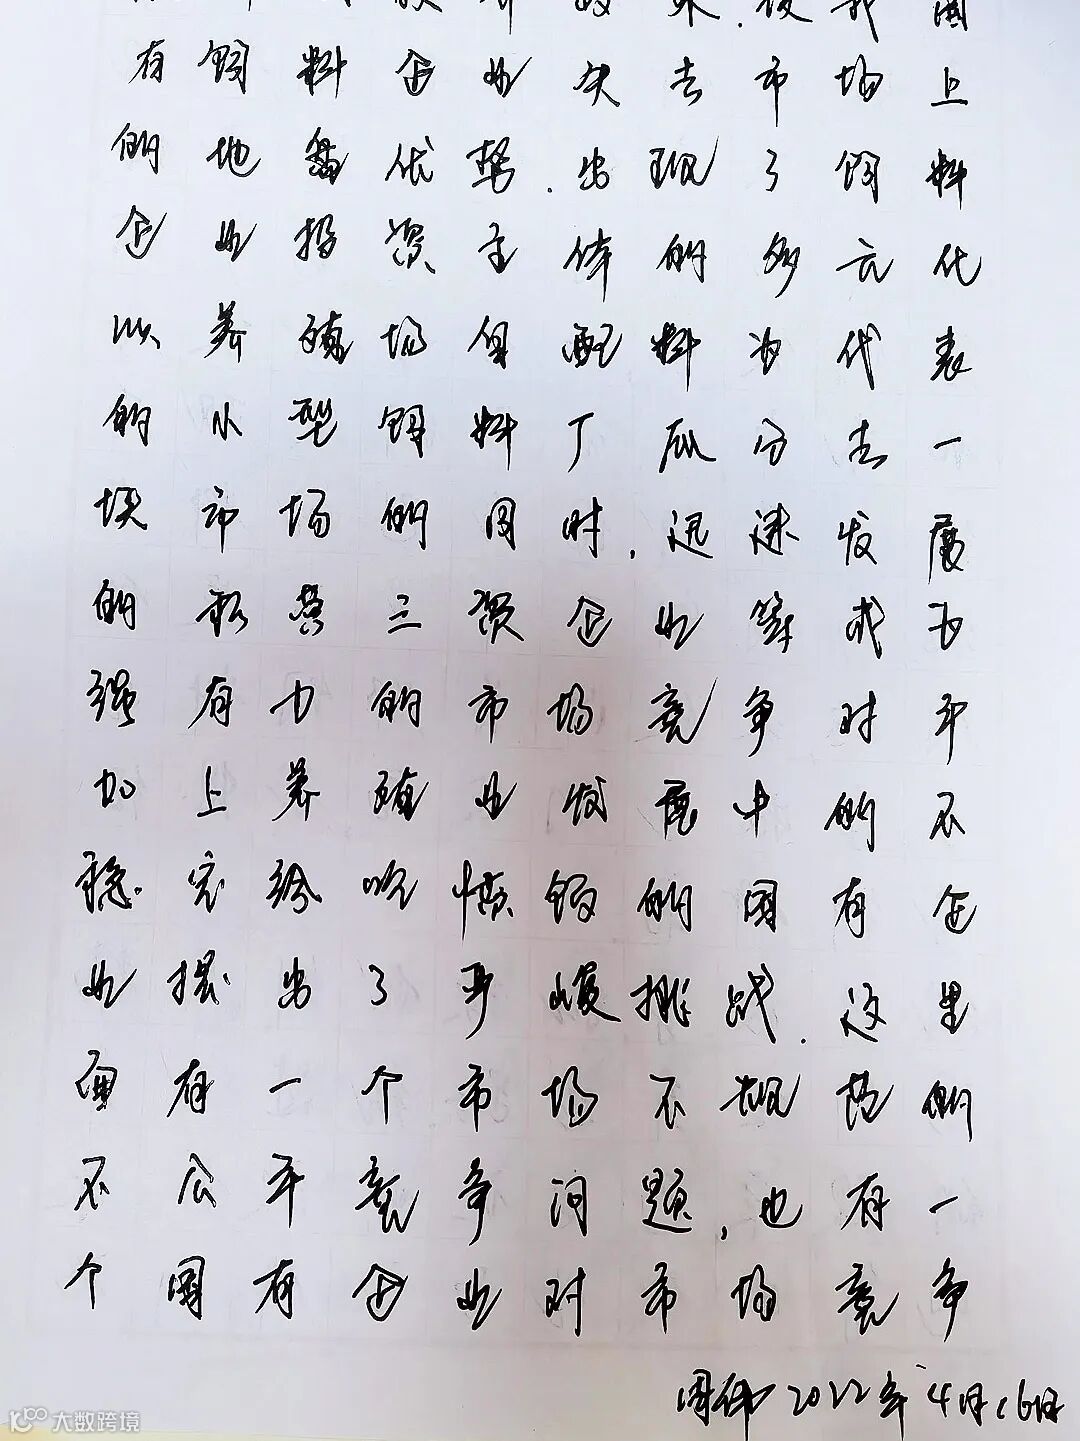 政策,使我国
有饲料企业失去市场上
的地盘优势.出现了饲料
企业投资主体的多元化
以养殖场自配料为代表
的小型饲料厂瓜分去一
块市场的同时,迅速发展
的私营三资企业等成为
强有力的市场竞争对手
加上养殖业发展中的不
稳定给吃惯饭的国有企
业摆出了严峻挑战.这里
面有一个市场不规范的
不公平竞争问题,也有一
个国有企业对市场竞争
周伟2022年4月16日
大数跨境